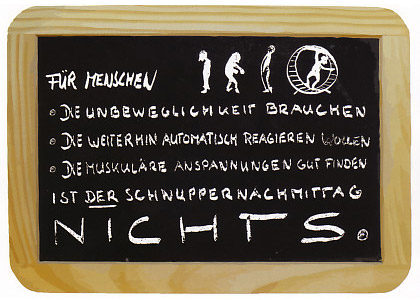 FÜR MENSCHEN
• DIE UNBEWEGLICHKEIT BRAUCHEN
• DIE WEITERHIN AUTOMATISCH REAGIEREN WOLLEN
• DIE MUSKULÄRE ANSPANNUNGEN GUT FINDEN
IST DER SCHNUPPERNACHMITTAG
NICHTS.